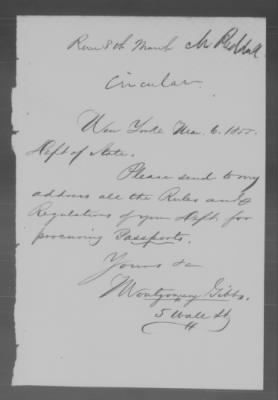 Recd 8th March Mr Reddall
Circular.
New York Mar. 6. 1855.
Dept of State.
Please send to my
address all the Rules and
Regulations of your Dept. for
procuring Passports.
Yours &c
Montgomery Gibbs.
5 Wall St